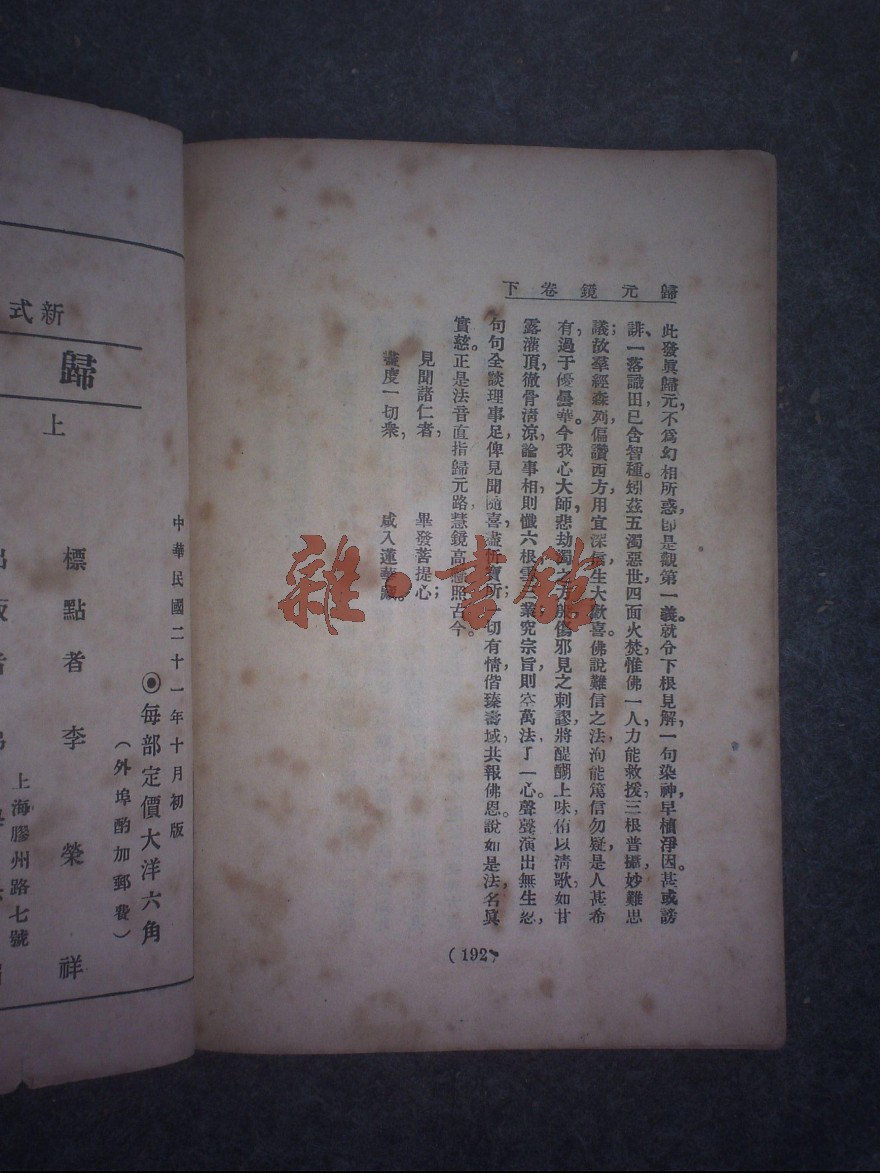 歸元鏡卷下
此發眞歸元,不爲幻相所惑,卽是觀第一義。就令下根見解,一句染神,早植淨因。甚或謗
誹、一落識田,已含智種。矧茲五濁惡世,四面火焚,惟佛一人,力能救援,三根普攝,妙難思
議;故羣經森列,偏讚西方,用宜深信,生大歡喜。佛說難信之法,洵能篤信勿疑,是人甚希
有,過于優曇華。今我心大師,悲劫濁之方 傷邪見之刺謬,將醍醐上味,侑以淸歌,如甘
露灌頂,徹骨淸涼,論事相則懺六根雪 業,究宗旨則空萬法了一心。聲聲演出無生忍,
句句全談理事足,俾見聞隨喜,盡祈寶所;一切有情,偕臻壽域,共報佛恩。說如是法,名眞
實慈。正是法音直指歸元路,慧鏡高 照古今。
見聞諸仁者,畢發菩提心;
盡度一切衆,咸入蓮華 。
(192)
中華民國二十一年十月初版
◉每部定價大洋六角
(外埠酌加郵費)
新式
歸
上
標點者李榮祥
上海膠州路七號
雜·書館